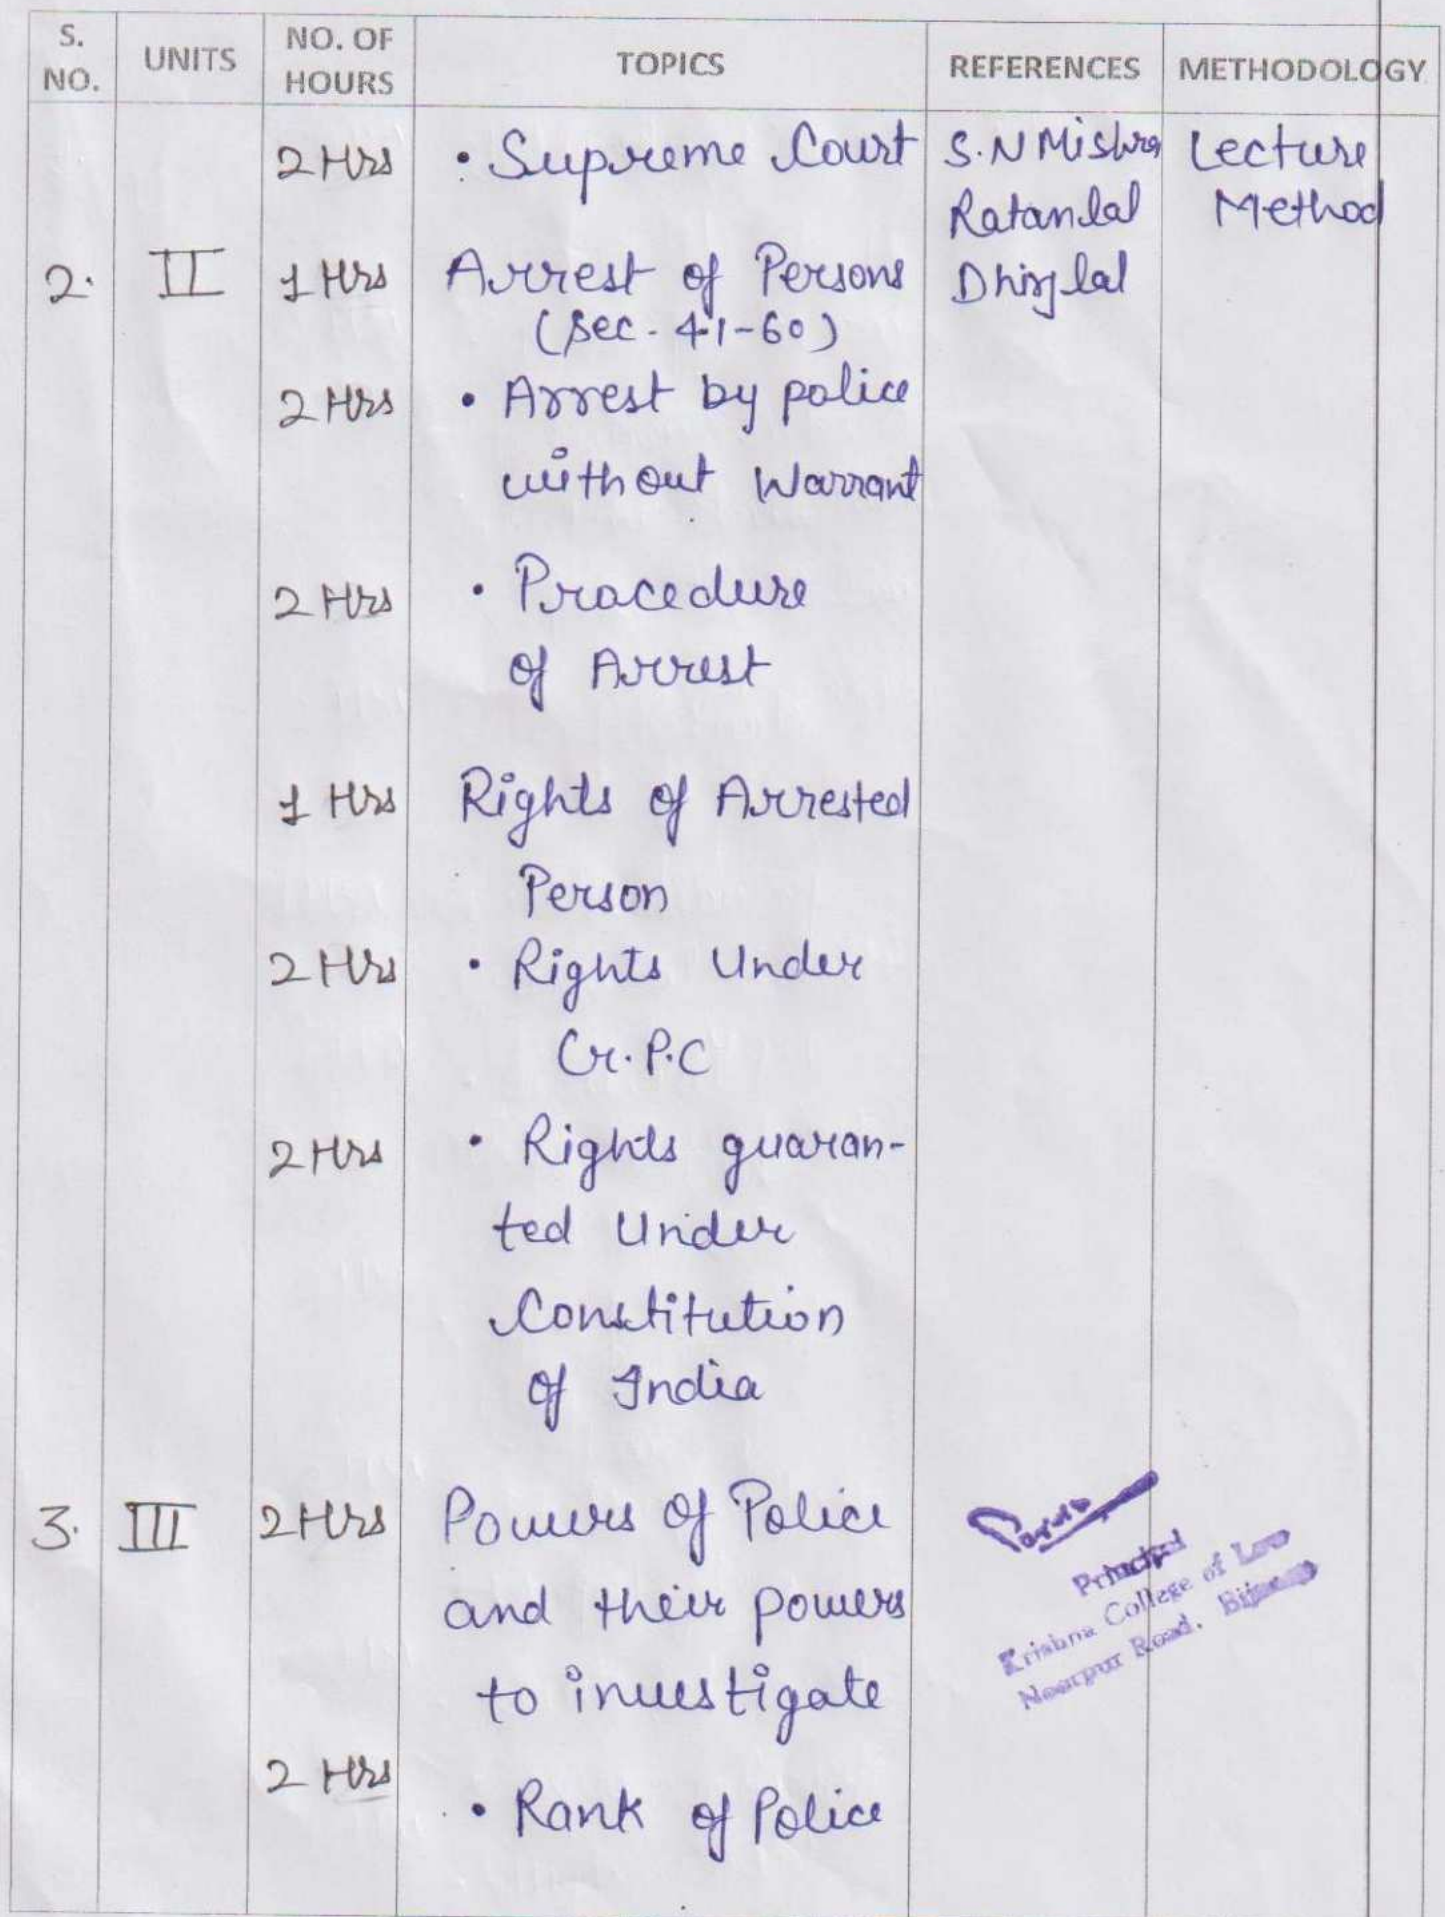 S. NO. UNITS NO. OF HOURS TOPICS REFERENCES METHODOLOGY
2 Hrs • Supreme Court S.N Mishra Lecture
Ratanlal Method
2. II 1 Hrs Arrest of Persons Dhirjlal
(Sec. 41-60)
2 Hrs • Arrest by police
without Warrant
2 Hrs • Procedure
of Arrest
1 Hrs Rights of Arrested
Person
2 Hrs • Rights Under
Cr.P.C
2 Hrs • Rights guaran-
ted Under
Constitution
of India
3. III 2 Hrs Powers of Police
and their powers
to investigate
2 Hrs • Rank of Police
Principal
Krishna College of Law
Road,